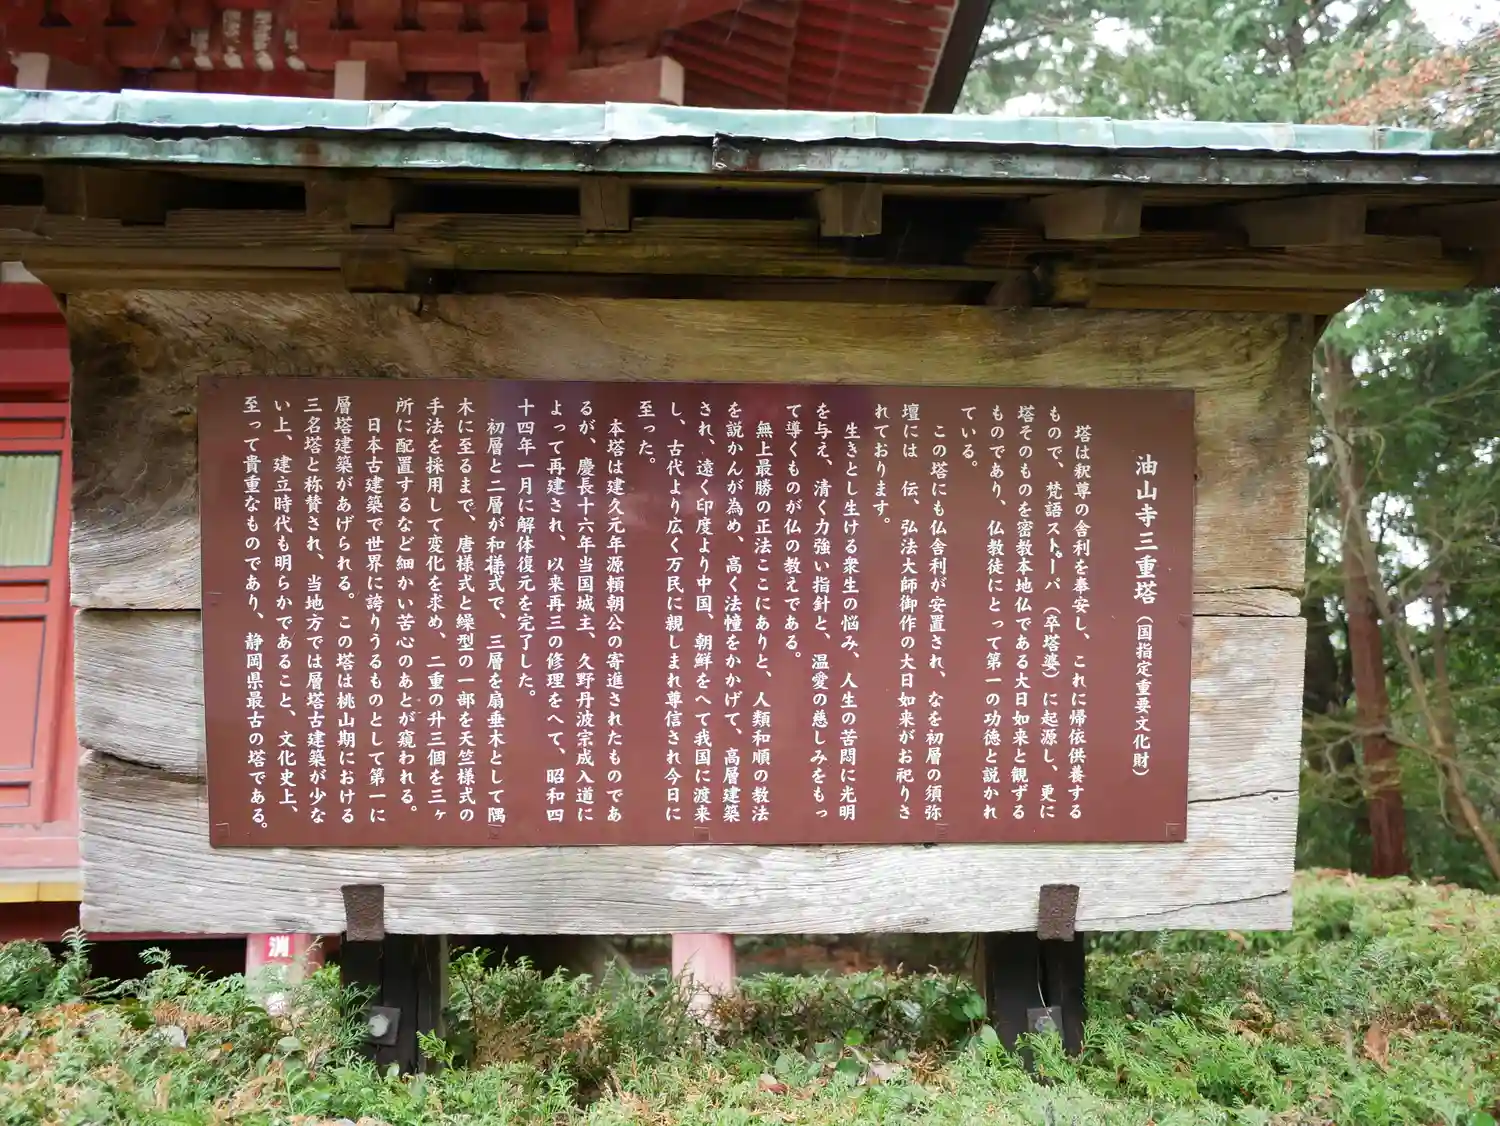 油山寺三重塔（国指定重要文化財）
塔は釈尊の舎利を奉安し、これに帰依供養する
もので、梵語ストゥーパ（卒塔婆）に起源し、更に
塔そのものを密教本地仏である大日如来と観ずる
ものであり、仏教徒にとって第一の功徳と説かれ
ている。
この塔にも仏舎利が安置され、なを初層の須弥
壇には　伝、弘法大師御作の大日如来がお祀りさ
れております。
生きとし生ける衆生の悩み、人生の苦悶に光明
を与え、清く力強い指針と、温愛の慈しみをもっ
て導くものが仏の教えである。
無上最勝の正法ここにありと、人類和順の教法
を説かんが為め、高く法幢をかかげて、高層建築
され、遠く印度より中国、朝鮮をへて我国に渡来
し、古代より広く万民に親しまれ尊信され今日に
至った。
本塔は建久元年源頼朝公の寄進されたものであ
るが、慶長十六年当国城主、久野丹波宗成入道に
よって再建され、以来再三の修理をへて、昭和四
十四年一月に解体復元を完了した。
初層と二層が和様式で、三層を扇垂木として隅
木に至るまで、唐様式と繰型の一部を天竺様式の
手法を採用して変化を求め、二重の升三個を三ヶ
所に配置するなど細かい苦心のあとが窺われる。
日本古建築で世界に誇りうるものとして第一に
層塔建築があげられる。この塔は桃山期における
三名塔と称賛され、当地方では層塔古建築が少な
い上、建立時代も明らかであること、文化史上、
至って貴重なものであり、静岡県最古の塔である。
消